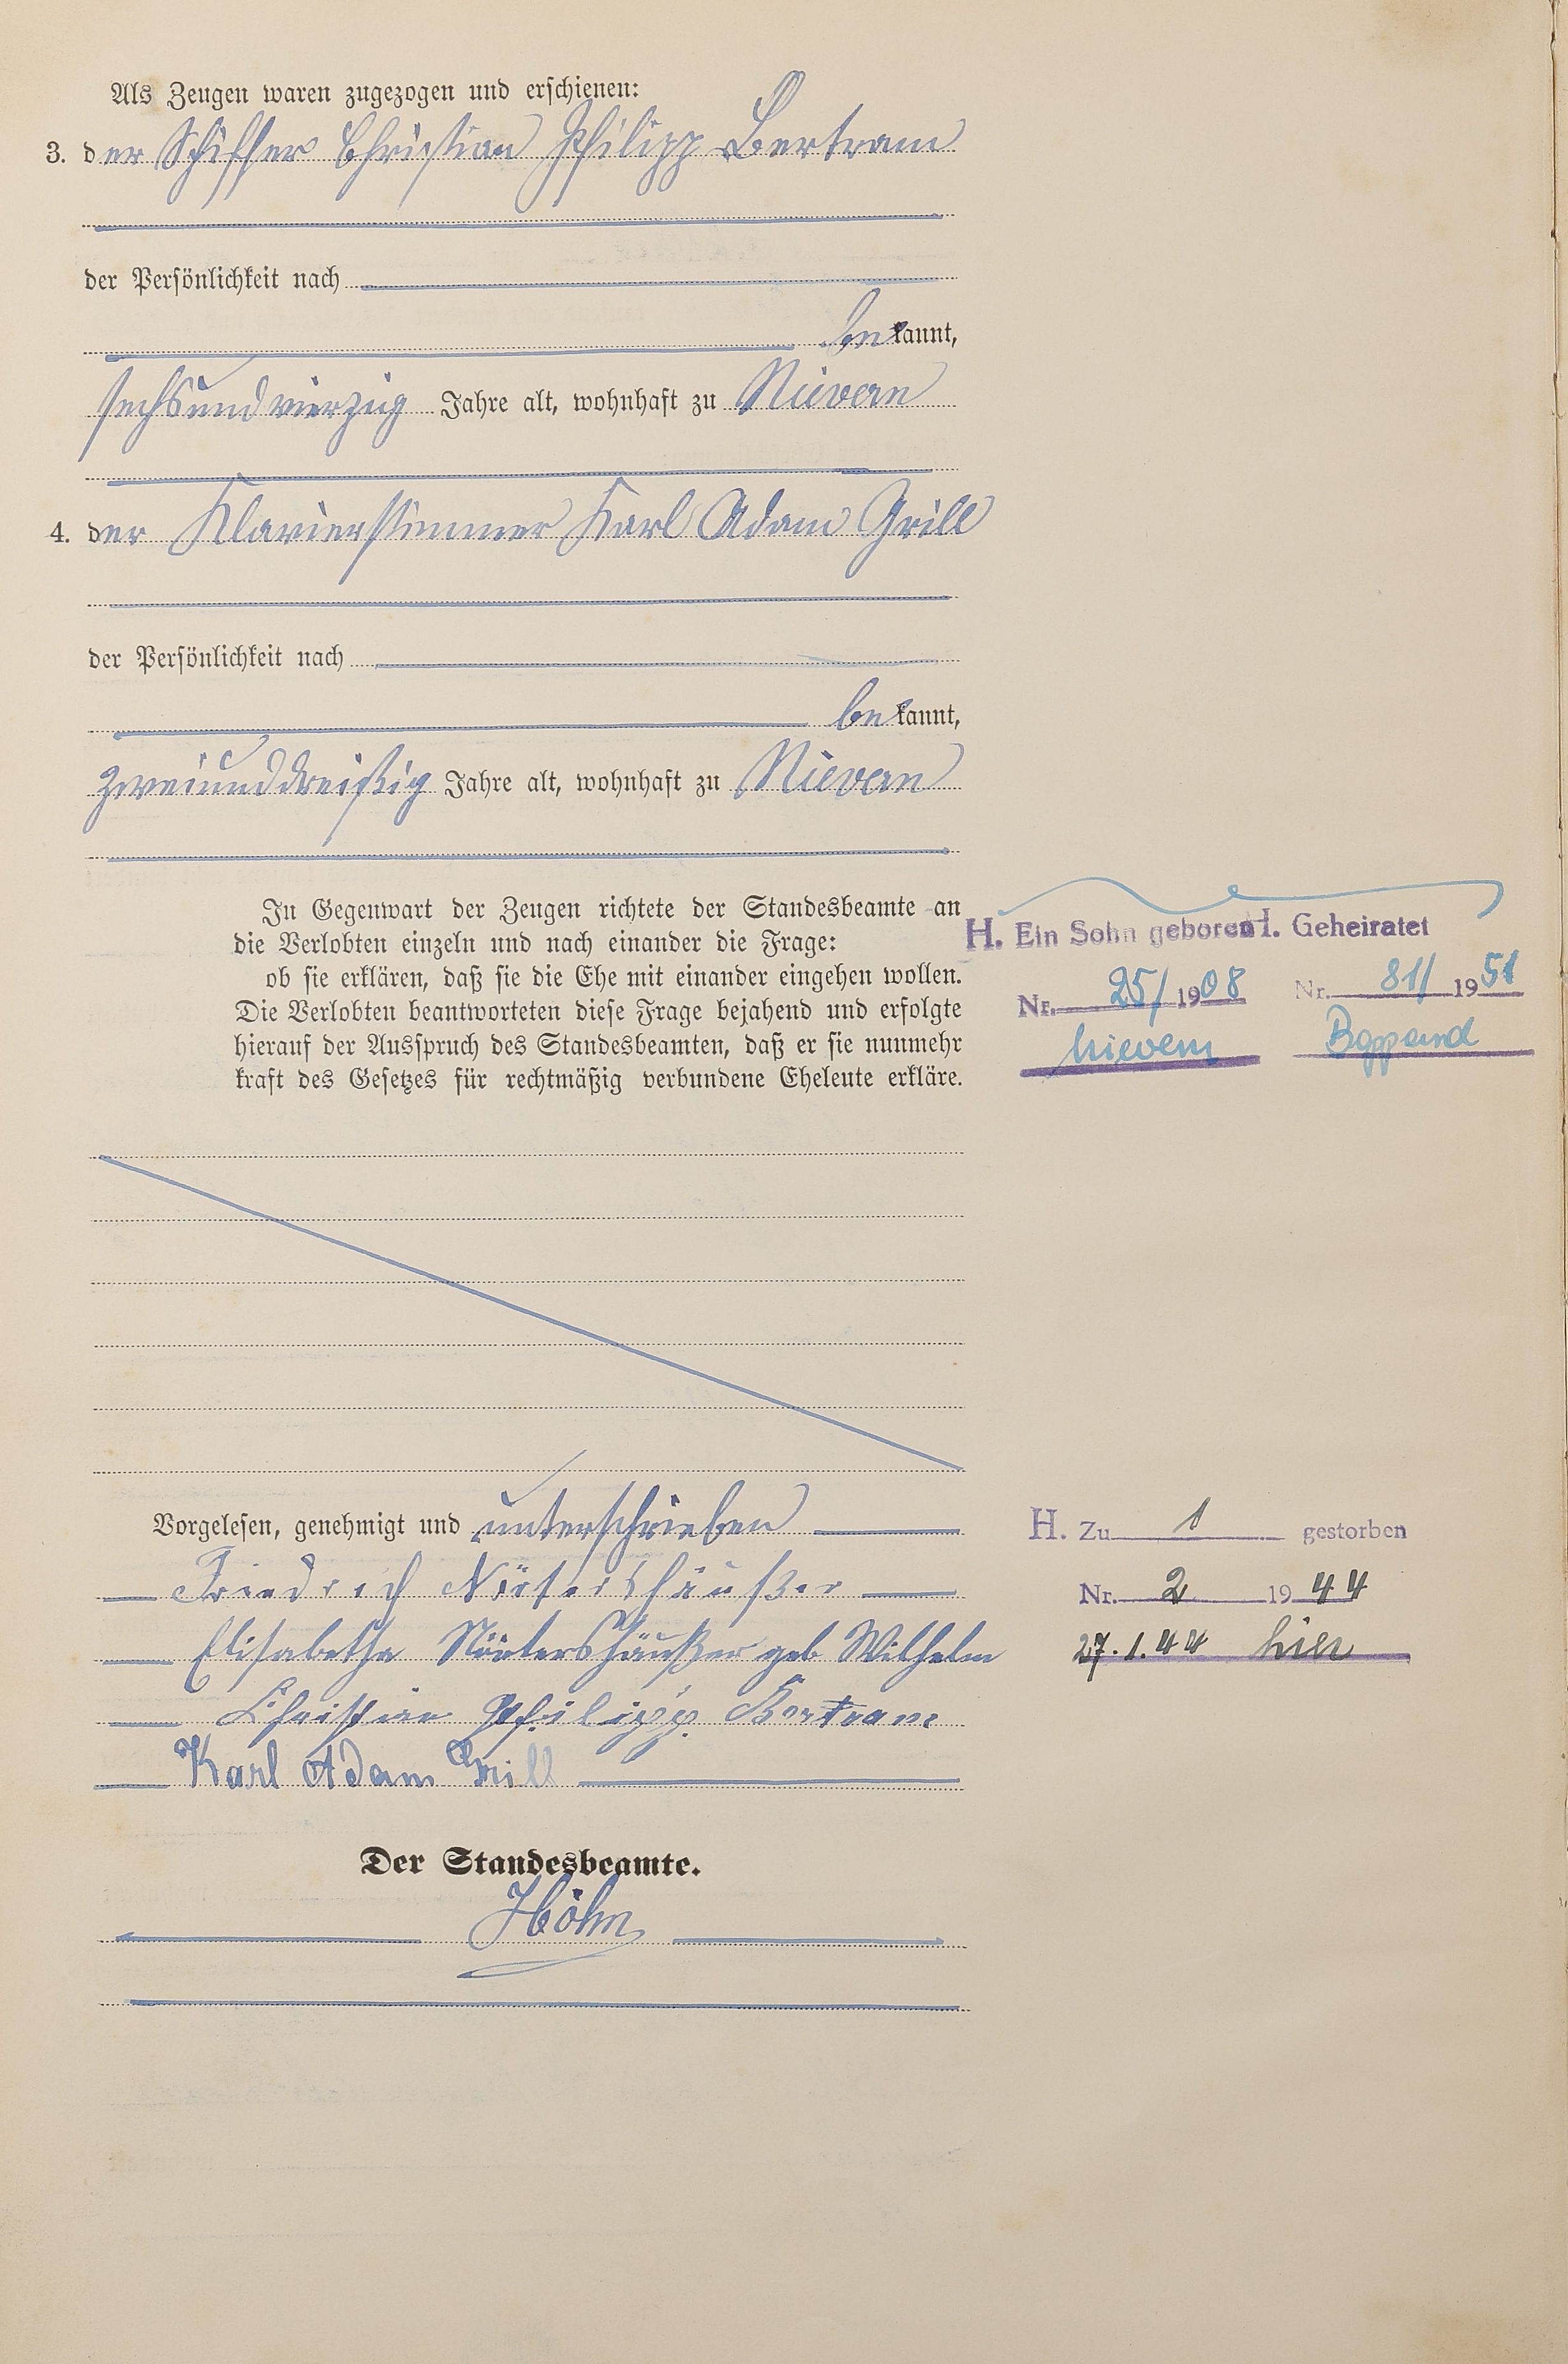 Als Zeugen waren zugezogen und erschienen:
3. der Schiffer Christian Philipp Bertram
der Persönlichkeit nach
bekannt,
sechsundvierzig Jahre alt, wohnhaft zu Nievern
4. der Klavierstimmer Karl Adam Grill
der Persönlichkeit nach
bekannt,
zweiunddreißig Jahre alt, wohnhaft zu Nievern
In Gegenwart der Zeugen richtete der Standesbeamte an
die Verlobten einzeln und nach einander die Frage:
ob sie erklären, daß sie die Ehe mit einander eingehen wollen.
Die Verlobten beantworteten diese Frage bejahend und erfolgte
hierauf der Ausspruch des Standesbeamten, daß er sie nunmehr
kraft des Gesetzes für rechtmäßig verbundene Eheleute erkläre.
H. Ein Sohn geboren
Nr. 25/1908
Nievern
H. Geheiratet
Nr. 81/1951
Boppard
Vorgelesen, genehmigt und unterschrieben
Friedrich Nörtershäußer
Elisabetha Nörtershäußer geb Wilhelm
Christian Philipp Bertram
Karl Adam Grill
H. Zu 1 gestorben
Nr. 2 1944
27.1.44 hier
Der Standesbeamte.
Höhn